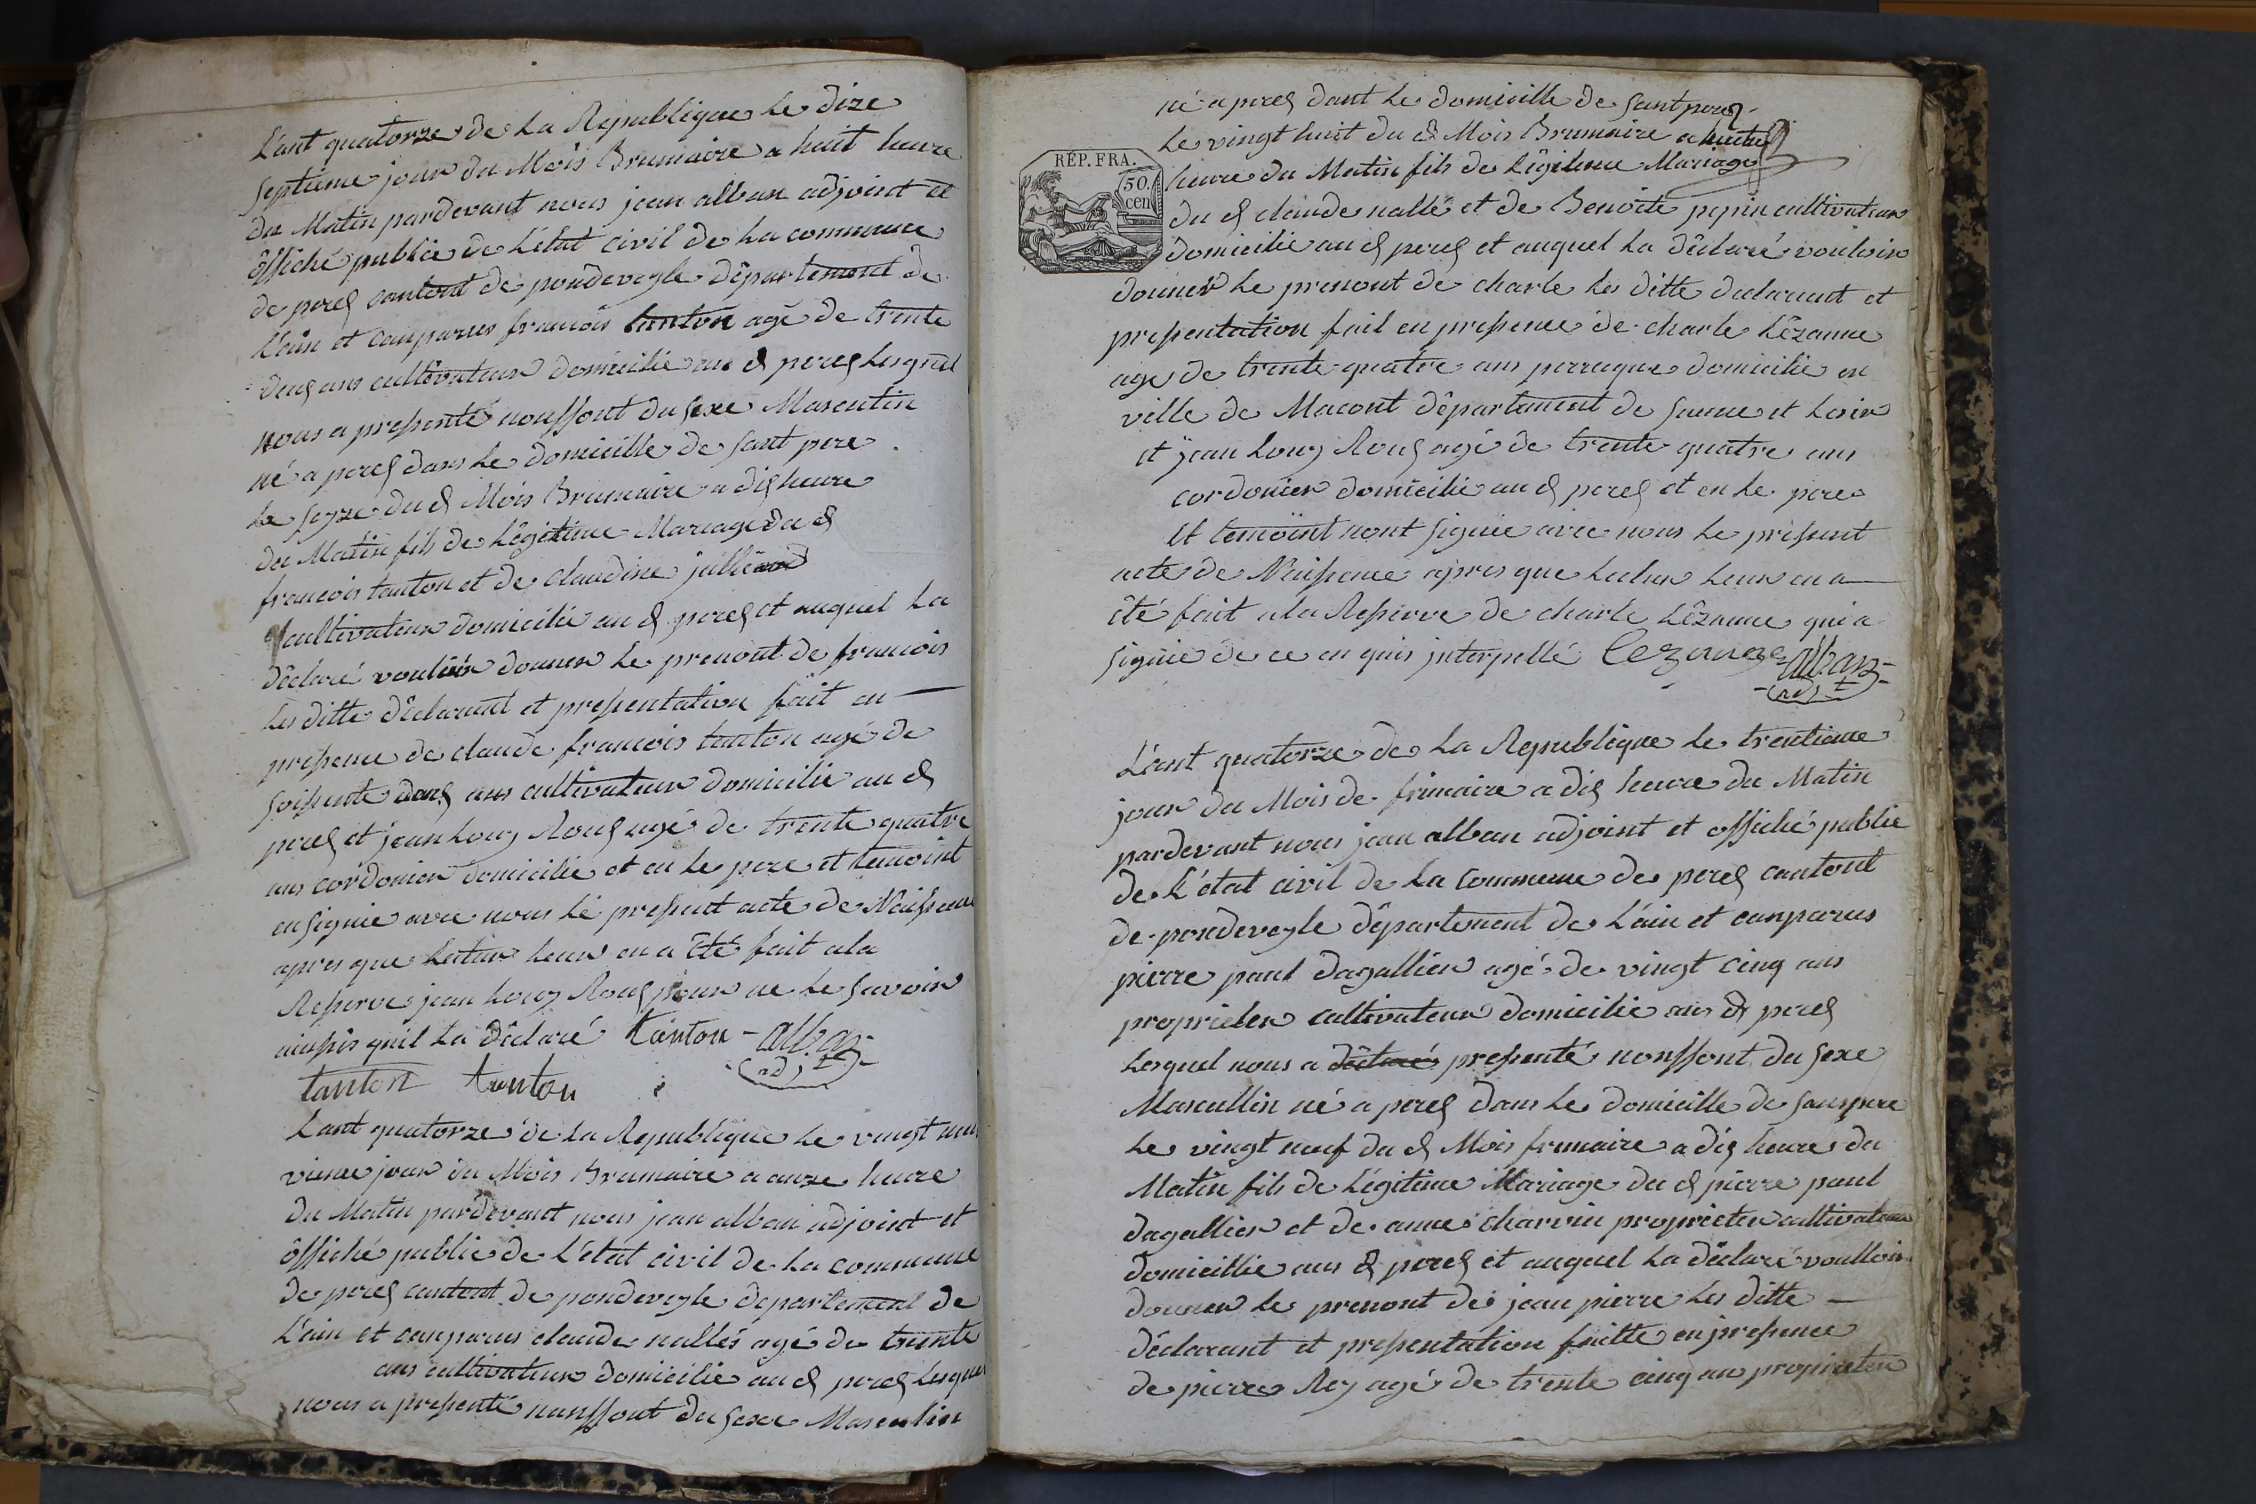 L'ant quatorze de La Republique Le dize
Septieme jour du Mois Brumaire a huit heure
du Matin pardevant nous jean alban adjoint et
ôffiché publie de L'état civil de La commune
de perex cantont de pondeveyle département de
L'ain et conparus francois tanton agé de trente
deux ans cultivateur domicilié au d perex Lesquel
nous a presenté nonffont du sexe Masculin
né a perex dans Le domicille de sont pere
Le seyze du d Mois Brumaire a dix heure
du Matin fils de Légitime Mariage du d
francois tanton et de claudine
cultivateur domicilié au d perex et auquel La
déclaré vouloir donner Le prenont de francois
Les ditte déclarant et presentation fait en
presence de claude francois tanton agé de
soisente ans cultivateur domicilié au d
perex et jean Louy Roux agé de trente quatre
ans cordonier domicilié et en Le pere et temoint
en signié avec nous Le present acte de Naissence
apres que Lectur Leur en a été fait ala
Reserve jean Louy Roux pour ne Le savoir
ainsis quil La déclaré tanton - alban -
adjt
tanton tanton
L'ant quatorze de La Republique Le vingt neu
vieme jour du Mois Brumaire a onze heure
du Matin pardevant nous jean alban adjoint et
ôffiché publie de L'état civil de La commune
de perex cantont de pondeveyle departement de
L'ain et conparus claude nallés agé de trente
ans cultivateur domicilié au d perex Lesquel
nous a presenté nonffont du sexe Masculin
né a perex dant Le domicille de sont perex
Le vingt huit du d Mois Brumaire a huite
RÉP. FRA.
50.
cen
heure du Matin fils de Légitime Mariage
du d claude nallé et de Benoite pepin cultivateur
domicilié au d perex et auquel La déclaré vouloir
donner Le prenont de charle Les ditte declarant et
presentation fait en presence de charle Lêzanne
age de trente quatre ans domicilié en
ville de Macont département de saune et Loire
et jean Louy Roux agé de trente quatre ans
cordonier domicilié au d perex et en Le pere
Et temoint nont signié avec nous Le present
acte de Naissence apres que Lectur Leur en a
été fait ala Reserve de charle Lêzanne qui a
signié de ce en quis interpellé Lezanne alban
adjt
L'ant quatorze de La Republique Le trentieme
jour du Mois de frimaire a dix heure du Matin
pardevant nous jean alban adjoint et officié publie
de L'état civil de La commune de perex cantont
de pondeveyle département de L'ain et conparus
pierre paul dagallier agé de vingt cinq ans
proprieter cultivateur domicilié au d perex
Lesquel nous a déclaré presenté nonffont du sexe
Mascullin né a perex dans Le domicille de sons pere
Le vingt neuf du d Mois frimaire a dix heure du
Matin fils de Légitime Mariage du d pierre paul
dagallier et de anne charvin proprieter cultivateur
domicillié aus d perex et auquel La déclaré voulloir
donner Le prenont de jean pierre Les ditte
déclarant et presentation faitte en presence
de pierre Rey agé de trente cinq ans proprieter